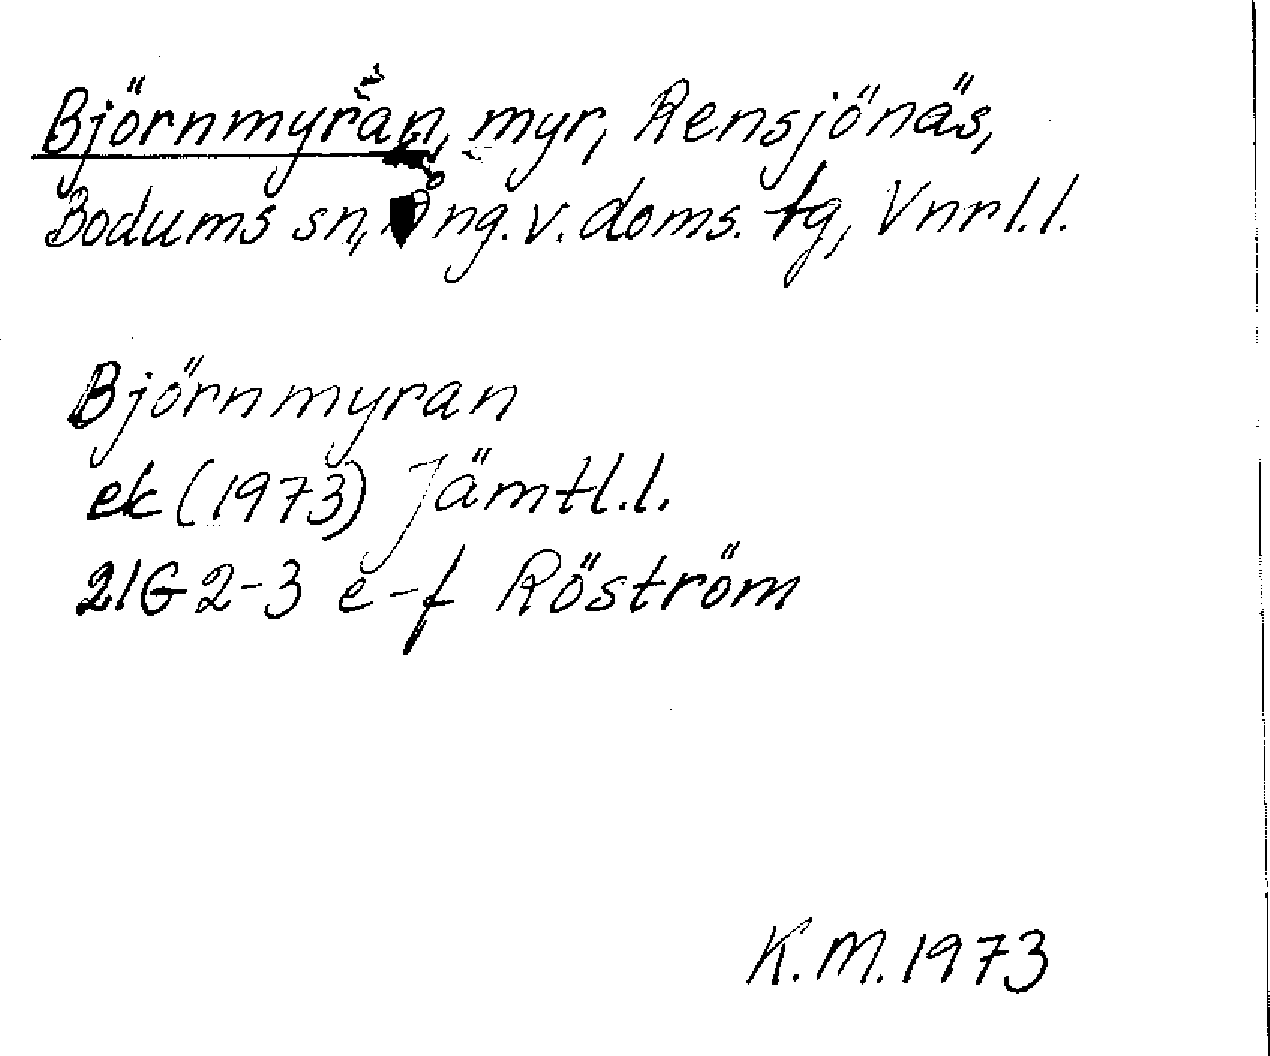 Björnmyran, myr, Rensjönäs,
Bodums sn, Ång. v. doms. tg, Vnrl.l.
Björnmyran
ek (1973) Jämtl.l.
21G 2-3 e-f Röström
K.M. 1973